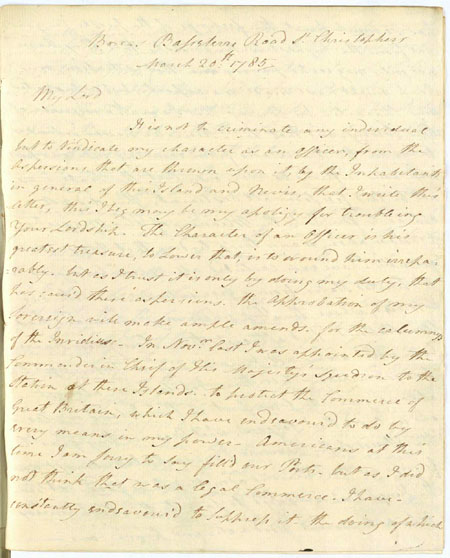 Boreas Basseterre Road St. Christophers
March 20th 1785
My Lord
It is not to criminate any individual
but to vindicate my character as an Officer, from the
aspersions that are thrown upon it, by the Inhabitants
in general of this Island and Nevis, that I write this
letter, this I beg may be my apology for troubling
Your Lordship. The Character of an Officer is his
greatest treasure, to lower that, is to wound him irrepa-
-rably. but as I trust it is only by doing my duty, that
has caus'd these aspersions. the approbation of my
Sovereign will make ample amends. for the calumny
of the Invidius - In Novr. last I was appointed by the
Commander in Chief of His Majesty's Squadron to the
Station of these Islands. to protect the Commerce of
Great Britain, which I have endeavour'd to do by
every means in my power - Americans at this
time I am sorry to say fill'd our Ports - but as I did
not think that was a legal Commerce - I have -
constantly endeavour'd to suppress it the doing of which